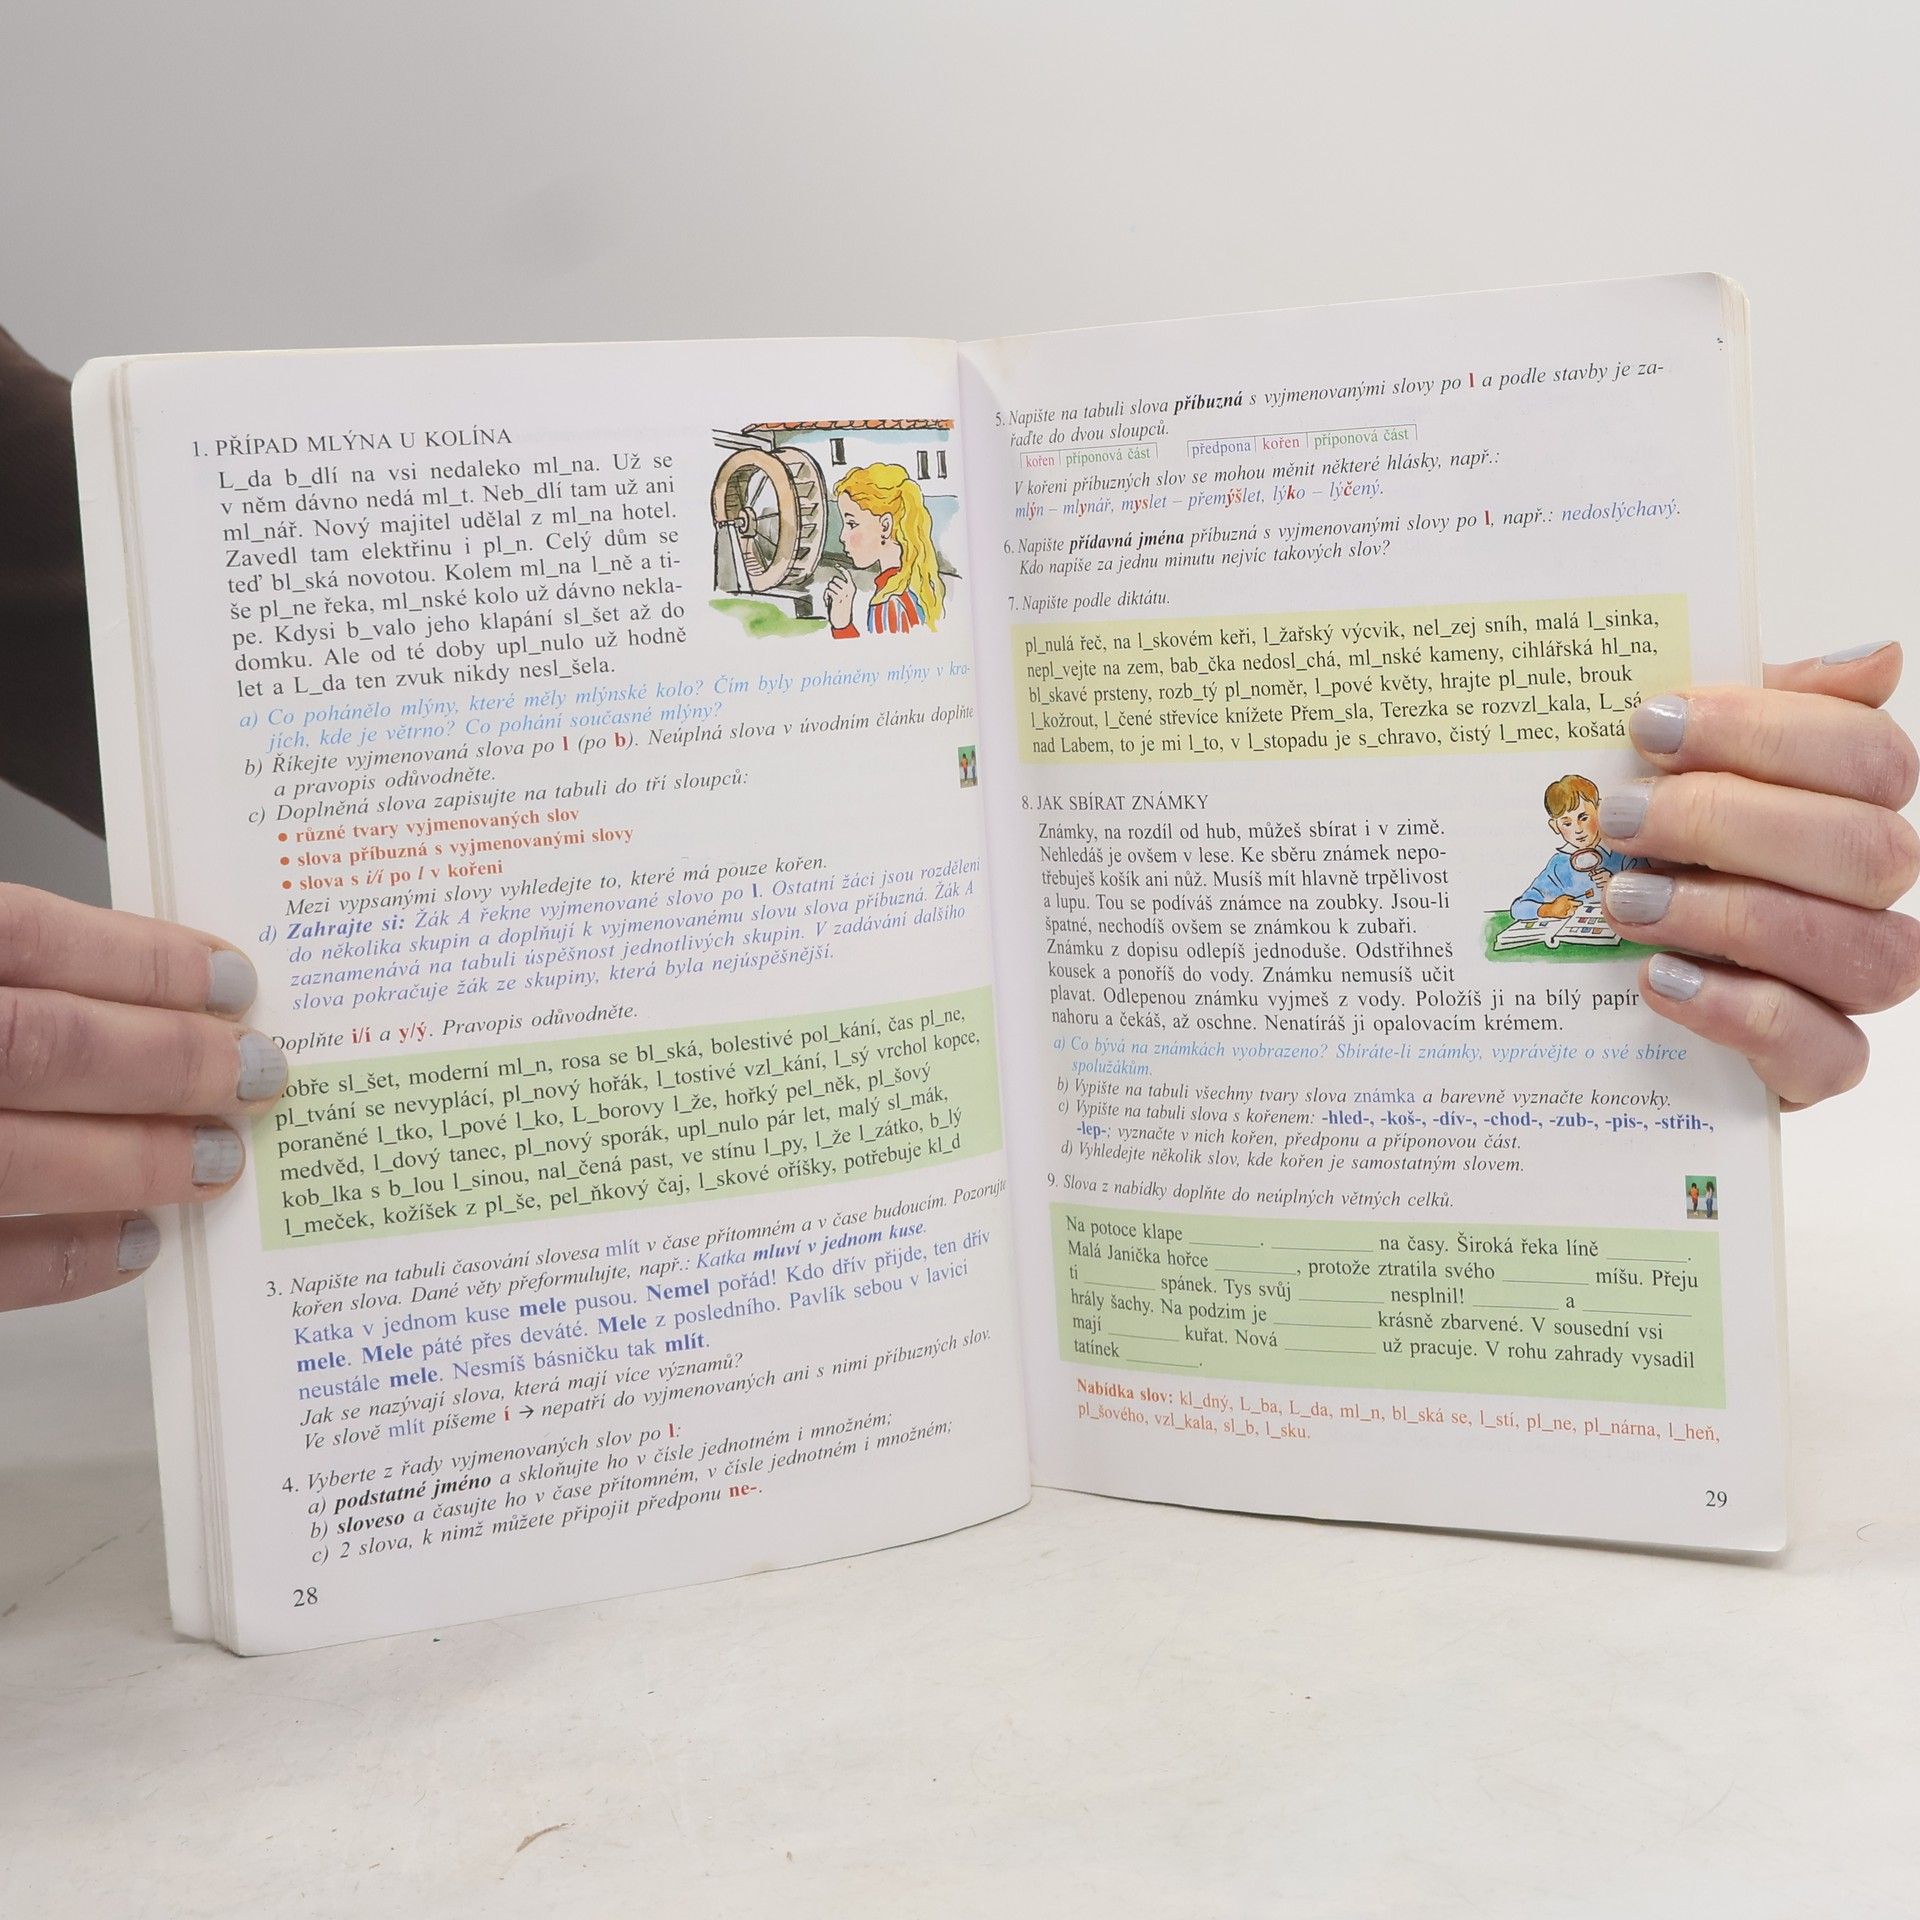 1. PŘÍPAD MLÝNA U KOLÍNA
L_da b_dlí na vsi nedaleko ml_na. Už se
v něm dávno nedá ml_t. Neb_dlí tam už ani
ml_nář. Nový majitel udělal z ml_na hotel.
Zavedl tam elektřinu i pl_n. Celý dům se
teď bl_ská novotou. Kolem ml_na l_ně a ti-
še pl_ne řeka, ml_nské kolo už dávno nekla-
pe. Kdysi b_valo jeho klapání sl_šet až do
domku. Ale od té doby upl_nulo už hodně
let a L_da ten zvuk nikdy nesl_šela.
a) Co pohánělo mlýny, které měly mlýnské kolo? Čím byly poháněny mlýny v kra-
jích, kde je větrno? Co pohání současné mlýny?
b) Říkejte vyjmenovaná slova po l (po b). Neúplná slova v úvodním článku doplňte
a pravopis odůvodněte.
c) Doplněná slova zapisujte na tabuli do tří sloupců:
• různé tvary vyjmenovaných slov
• slova příbuzná s vyjmenovanými slovy
• slova s i/í po l v kořeni
Mezi vypsanými slovy vyhledejte to, které má pouze kořen.
d) Zahrajte si: Žák A řekne vyjmenované slovo po l. Ostatní žáci jsou rozděleni
do několika skupin a doplňují k vyjmenovanému slovu slova příbuzná. Žák A
zaznamenává na tabuli úspěšnost jednotlivých skupin. V zadávání dalšího
slova pokračuje žák ze skupiny, která byla nejúspěšnější.
Doplňte i/í a y/ý. Pravopis odůvodněte.
obře sl_šet, moderní ml_n, rosa se bl_ská, bolestivé pol_kání, čas pl_ne,
pl_tvání se nevyplácí, pl_nový hořák, l_tostivé vzl_kání, l_sý vrchol kopce,
poraněné l_tko, l_pové l_ko, L_borovy l_že, hořký pel_něk, pl_šový
medvěd, l_dový tanec, pl_nový sporák, upl_nulo pár let, malý sl_mák,
kob_lka s b_lou l_sinou, nal_čená past, ve stínu l_py, l_že l_zátko, b_lý
l_meček, kožíšek z pl_še, pel_ňkový čaj, l_skové oříšky, potřebuje kl_d
3. Napište na tabuli časování slovesa mlít v čase přítomném a v čase budoucím. Pozorujte
kořen slova. Dané věty přeformulujte, např.: Katka mluví v jednom kuse.
Katka v jednom kuse mele pusou. Nemel pořád! Kdo dřív přijde, ten dřív
mele. Mele páté přes deváté. Mele z posledního. Pavlík sebou v lavici
neustále mele. Nesmíš básničku tak mlít.
Jak se nazývají slova, která mají více významů?
Ve slově mlít píšeme í → nepatří do vyjmenovaných ani s nimi příbuzných slov.
4. Vyberte z řady vyjmenovaných slov po l:
a) podstatné jméno a skloňujte ho v čísle jednotném i množném;
b) sloveso a časujte ho v čase přítomném, v čísle jednotném i množném;
c) 2 slova, k nimž můžete připojit předponu ne-.
28
5. Napište na tabuli slova příbuzná s vyjmenovanými slovy po l a podle stavby je za-
řaďte do dvou sloupců.
kořen | příponová část předpona | kořen | příponová část
V kořeni příbuzných slov se mohou měnit některé hlásky, např.:
mlýn – mlynář, myslet – přemýšlet, lýko – lýčený.
6. Napište přídavná jména příbuzná s vyjmenovanými slovy po l, např.: nedoslýchavý.
Kdo napíše za jednu minutu nejvíc takových slov?
7. Napište podle diktátu.
pl_nulá řeč, na l_skovém keři, l_žařský výcvik, nel_zej sníh, malá l_sinka,
nepl_vejte na zem, bab_čka nedosl_chá, ml_nské kameny, cihlářská hl_na,
bl_skavé prsteny, rozb_tý pl_noměr, l_pové květy, hrajte pl_nule, brouk
l_kožrout, l_čené střevíce knížete Přem_sla, Terezka se rozvzl_kala, L_sá
nad Labem, to je mi l_to, v l_stopadu je s_chravo, čistý l_mec, košatá
8. JAK SBÍRAT ZNÁMKY
Známky, na rozdíl od hub, můžeš sbírat i v zimě.
Nehledáš je ovšem v lese. Ke sběru známek nepo-
třebuješ košík ani nůž. Musíš mít hlavně trpělivost
a lupu. Tou se podíváš známce na zoubky. Jsou-li
špatné, nechodíš ovšem se známkou k zubaři.
Známku z dopisu odlepíš jednoduše. Odstřihneš
kousek a ponoříš do vody. Známku nemusíš učit
plavat. Odlepenou známku vyjmeš z vody. Položíš ji na bílý papír
nahoru a čekáš, až oschne. Nenatíráš ji opalovacím krémem.
a) Co bývá na známkách vyobrazeno? Sbíráte-li známky, vyprávějte o své sbírce
spolužákům.
b) Vypište na tabuli všechny tvary slova známka a barevně vyznačte koncovky.
c) Vypište na tabuli slova s kořenem: -hled-, -koš-, -dív-, -chod-, -zub-, -pis-, -střih-,
-lep-; vyznačte v nich kořen, předponu a příponovou část.
d) Vyhledejte několik slov, kde kořen je samostatným slovem.
9. Slova z nabídky doplňte do neúplných větných celků.
Na potoce klape ______. ______ na časy. Široká řeka líně ______.
Malá Janička hořce ______, protože ztratila svého ______ míšu. Přeju
ti ______ spánek. Tys svůj ______ nesplnil! ______ a ______
hrály šachy. Na podzim je ______ krásně zbarvené. V sousední vsi
mají ______ kuřat. Nová ______ už pracuje. V rohu zahrady vysadil
tatínek ______.
Nabídka slov: kl_dný, L_ba, L_da, ml_n, bl_ská se, l_stí, pl_ne, pl_nárna, l_heň,
pl_šového, vzl_kala, sl_b, l_sku.
29